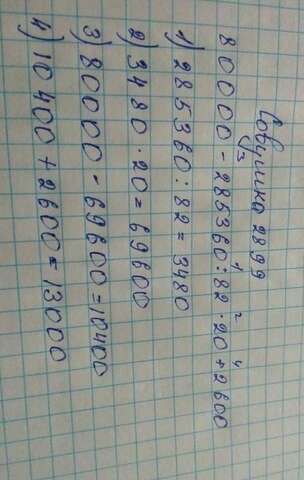 Совушка 2899
80000 - 285360 : 82 · 20 + 2600
3 1 2 4
1) 285360 : 82 = 3480
2) 3480 · 20 = 69600
3) 80000 - 69600 = 10400
4) 10400 + 2600 = 13000